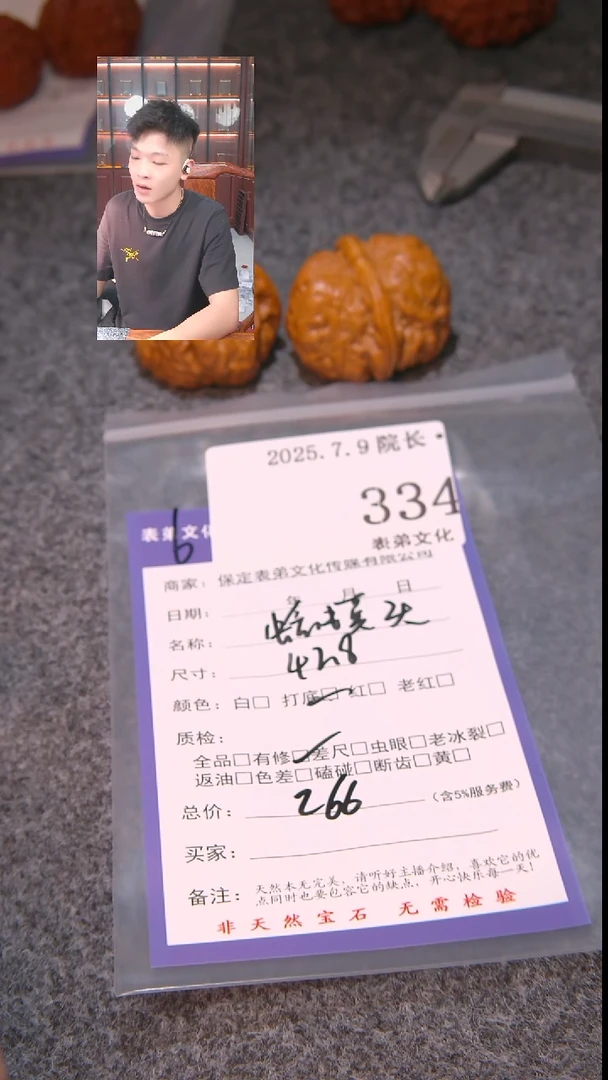 2025.7.9 院长
334
表弟文化
6
表弟文化
商家：保定表弟文化传媒有限公司
日期： 年 月 日
名称：
尺寸： 428
颜色：白□ 打底□ 红□ 老红□
质检：
全品□有修□差尺□虫眼□老冰裂□
返油□色差□磕碰□断齿□黄□
总价： 266 （含5%服务费）
买家：
备注：天然本无完美，请听好主播介绍，喜欢它的优
点同时也要包容它的缺点，开心快乐每一天！
非天然宝石 无需检验